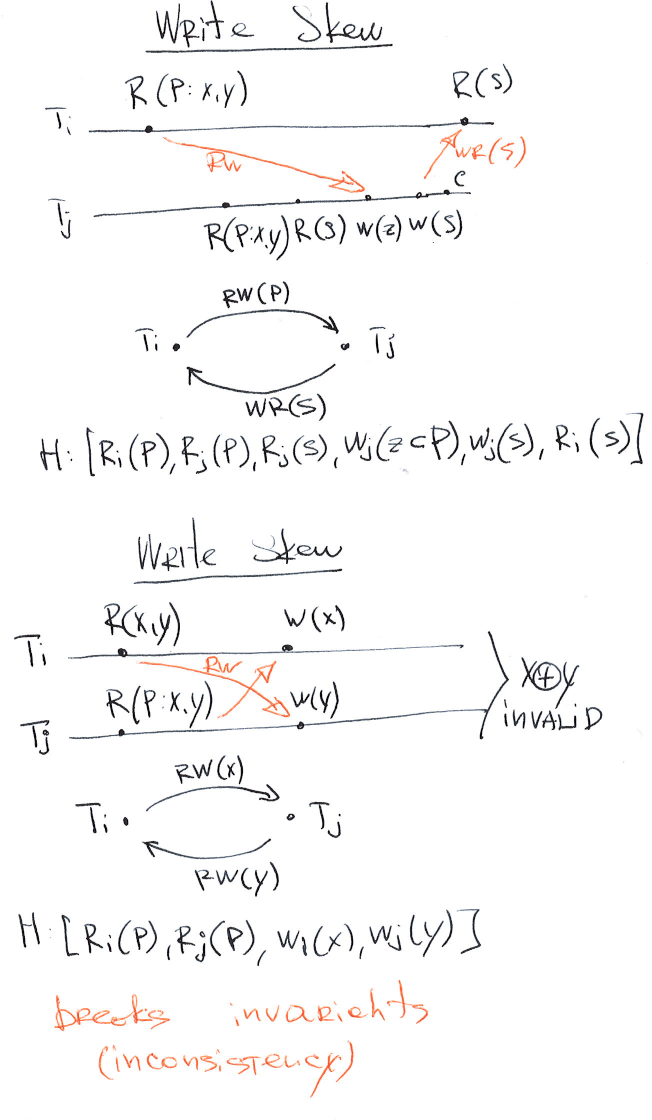 Write Skew
R(P:x,y) R(S)
Ti
RW WR(S)
C
Tj
R(P:x,y) R(S) W(z) W(S)
RW(P)
Ti Tj
WR(S)
H: [Ri(P), Rj(P), Rj(S), Wj(z⊂P), Wj(S), Ri(S)]
Write Skew
R(x,y) W(x)
Ti
RW
x⊕y
R(P:x,y) W(y)
INVALID
Tj
RW(x)
Ti Tj
RW(y)
H: [Ri(P), Rj(P), Wi(x), Wj(y)]
breaks invariants
(inconsistency)